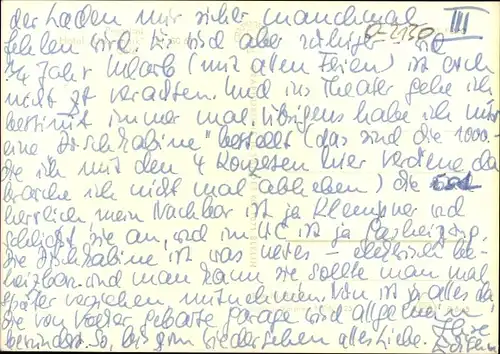 der Laden mir sicher manchmal III
fehlen wird. Es wird aber ruhiger und
1/4 Jahr Urlaub (mit allen Ferien) ist auch
nicht zu verachten. Und ins Theater gehe ich
bestimmt immer mal. Übrigens habe ich mir
eine Duschkabine bestellt (das sind die 1000
die ich mit den 4 Konzerten hier verdiene da
brauche ich nicht mal abheben) die
herrlich mein Nachbar ist ja Klempner und
schließt sie an, und im WC ist ja Gasheizung.
die Duschkabine ist was neues – elektrisch be-
heizbar und man kann sie sollte man mal
später verziehen, mitnehmen. Nun ist ja alles da
die von Vater gebaute Garage wird allgemein
bewundert. So, bis zum Wiedersehen alles Liebe.